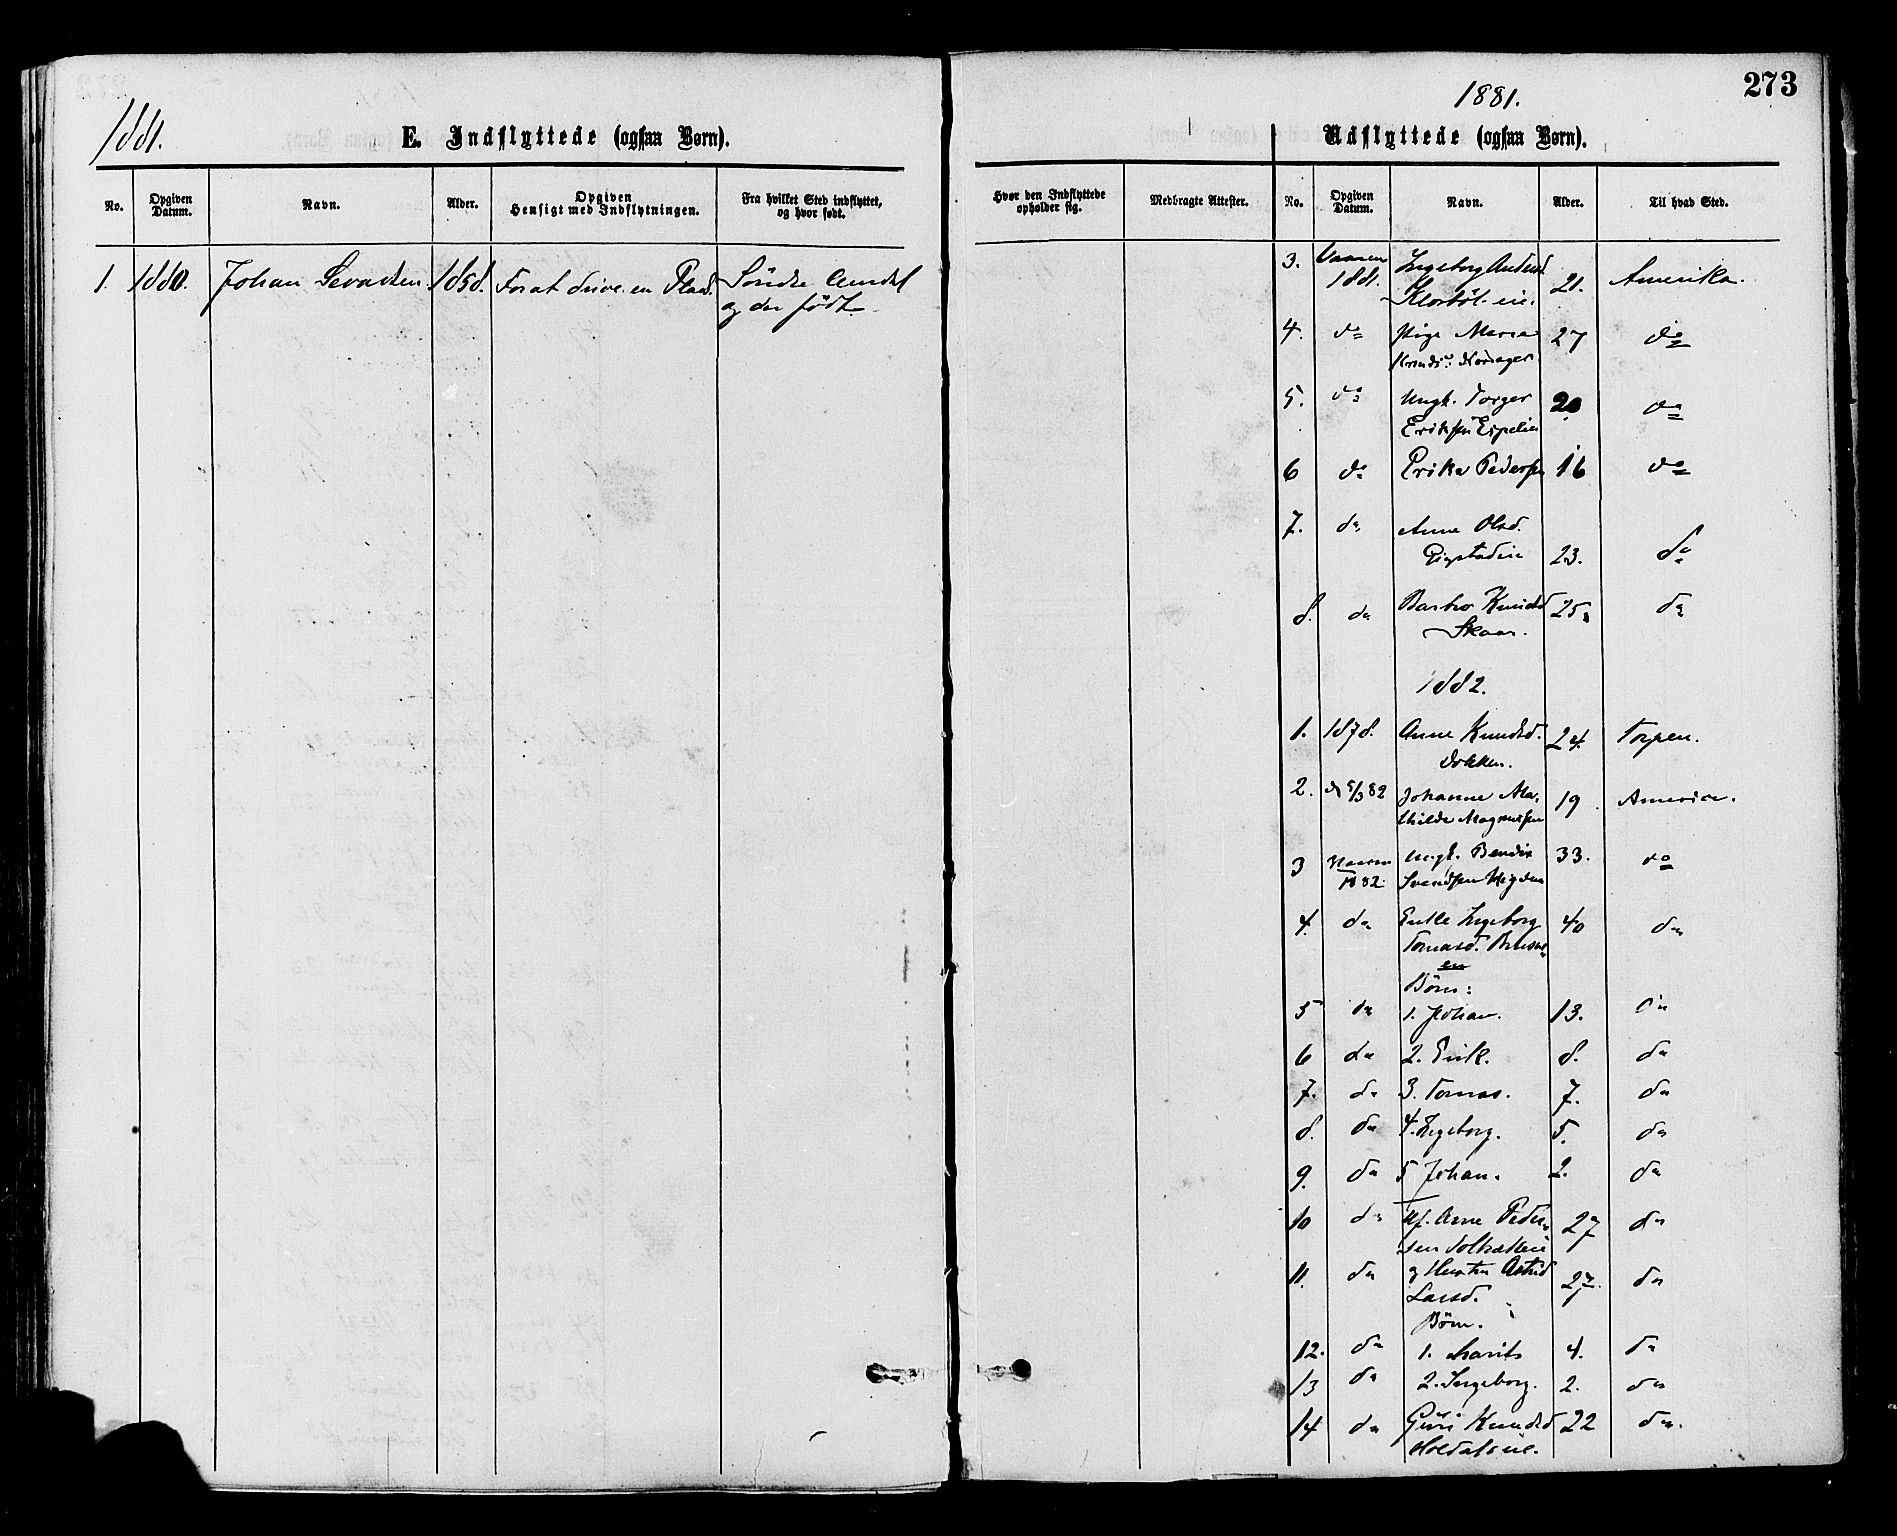 1881.
E. Indflyttede (ogsaa Børn).
No.
Opgiven Datum.
Navn.
Alder.
Opgiven Hensigt med Indflytningen.
Fra hvilket Sted indflyttet, og hvor født.
1. 1880. Johan 1858. For at drive en Plads. Søndre
og der født.
273
1881.
Udflyttede (ogsaa Børn).
Hvor den Indflyttede opholder sig.
Medbragte Attester.
No.
Opgiven Datum.
Navn.
Alder.
Til hvad Sted.
3. Vaaren Ingeborg Andersd.
1881. 21. Amerika.
4. do Pige Maria 27 do
5. do Ungk. Torger 20 do
Eriksen Espelien
6 do Erika Pedersen 16 do
7. do Anne Olsd.
23. do
8. do Barbro Knudsd 25. do
Skaar.
1882.
1. 1878. Anne Knudsd. 24. Torpen.
Dokken.
2. 5/3 82 Johanne Ma- 19. America.
thilde Magnussen
3 Vaaren Ungk. Bendix 33. do
1882. Svendsen
4. do Enke Ingeborg 40 do
Tomasd.
en
Børn:
5 do 1. Johan. 13. do
6 do 2. Erik. 8. do
7. do 3. Tomas. 7. do
8. do 4. Ingeborg. 5. do
9. do 5 Johan. 2. do
10 do Arne Peder- 27 do
sen
11. do og Hustru Astrid 27. do
Larsd.
Børn.
12. do 1. Marit 4. do
13 do 2. Ingeborg. 2. do
14 do Guri Knudsd 22 do.